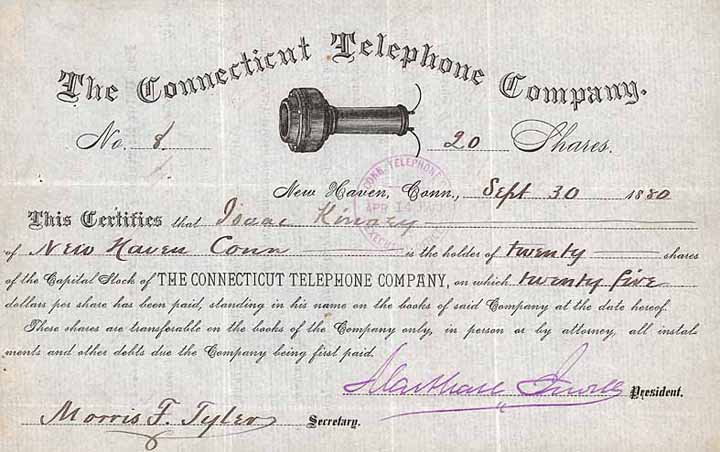 The Connecticut Telephone Company.
No. 8 20 Shares.
New Haven, Conn., Sept 30 1880
This Certifies that Isaac
of New Haven Conn is the holder of twenty shares
of the Capital Stock of THE CONNECTICUT TELEPHONE COMPANY, on which twenty five
dollars per share has been paid, standing in his name on the books of said Company at the date hereof.
These shares are transferable on the books of the Company only, in person or by attorney, all instal
ments and other debts due the Company being first paid.
President.
Morris F. Tyler Secretary.
CONN. TELEPHONE